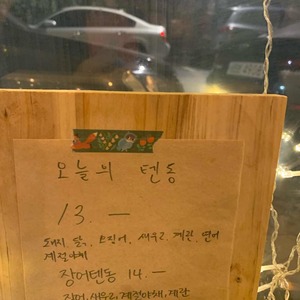 오늘의 텐동
13. —
돼지, 닭, 오징어, 새우2, 계란, 연어
계절야채
장어텐동 14. —
장어, 새우2, 계절야채, 계란